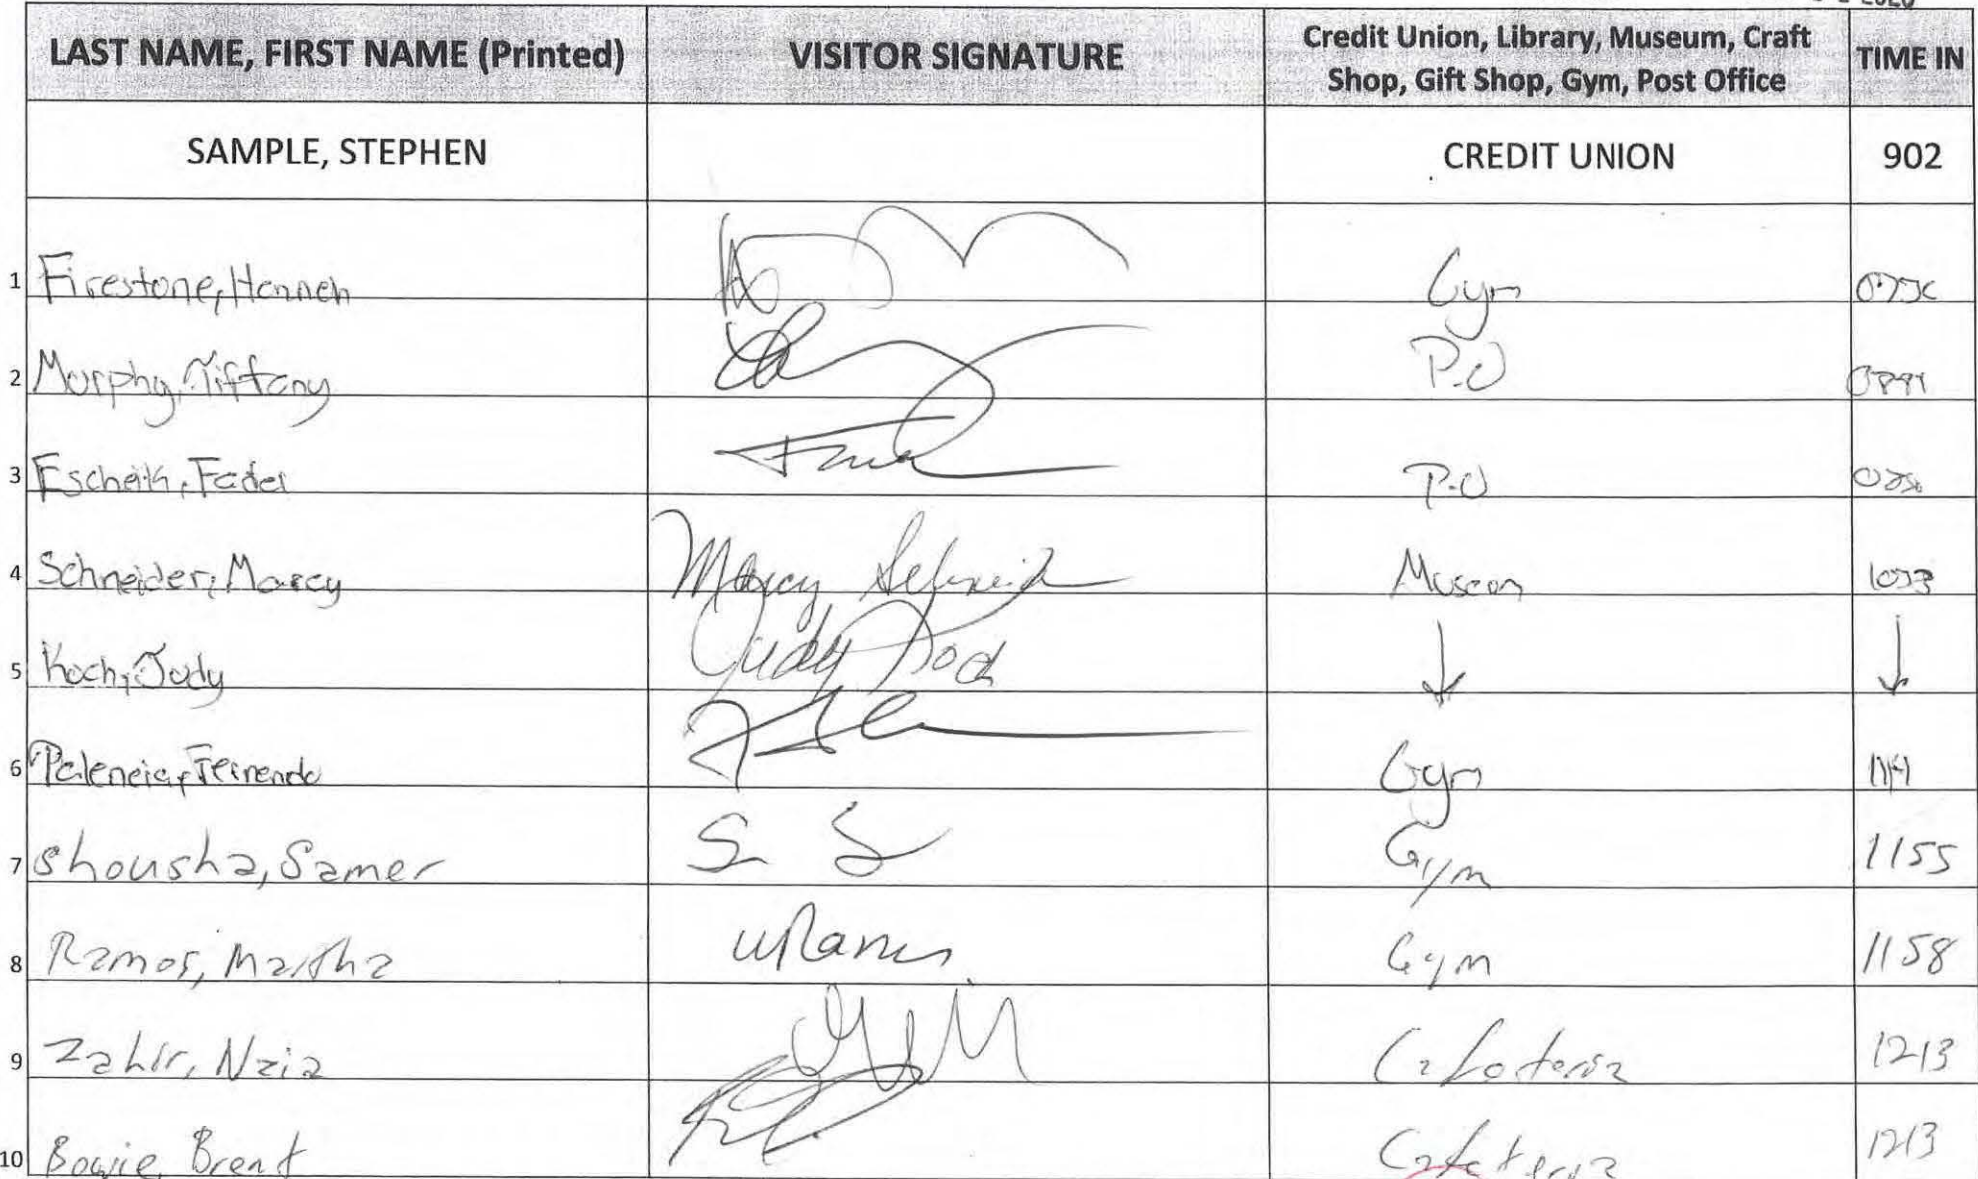 LAST NAME, FIRST NAME (Printed) VISITOR SIGNATURE Credit Union, Library, Museum, Craft Shop, Gift Shop, Gym, Post Office TIME IN
SAMPLE, STEPHEN CREDIT UNION 902
1 Firestone, Hannah Gym
2 Murphy, Tiffany P.O
3 Escheik, Fadel P.O
4 Schneider, Marcy Marcy Schneid Museum 1033
5 Koch, Judy Judy Koch ↓ ↓
6 Palencia, Fernando Gym
7 Shousha, Samer S S Gym 1155
8 Ramos, Martha MRamos Gym 1158
9 Zahir, Nzia Cafeteria 1213
10 Bowie, Brent Cafeteria 1213